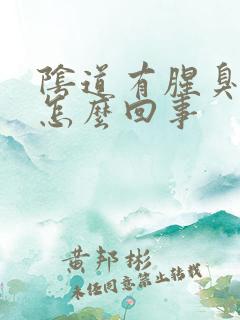 陰道有腥臭
怎麼回事
黃邦彬
未經同意禁止轉載